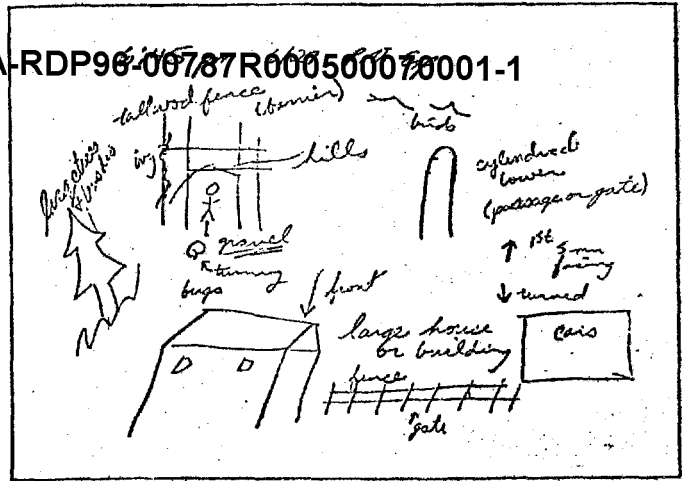 A-RDP96-00787R000500070001-1
tall wood fence (barrier)
birds
ivy
hills
cylindrical
tower
(passage or gate)
bushes
gravel
turning
bugs
front
1st 5 min
facing
turned
large house
or building
cars
fence
gate